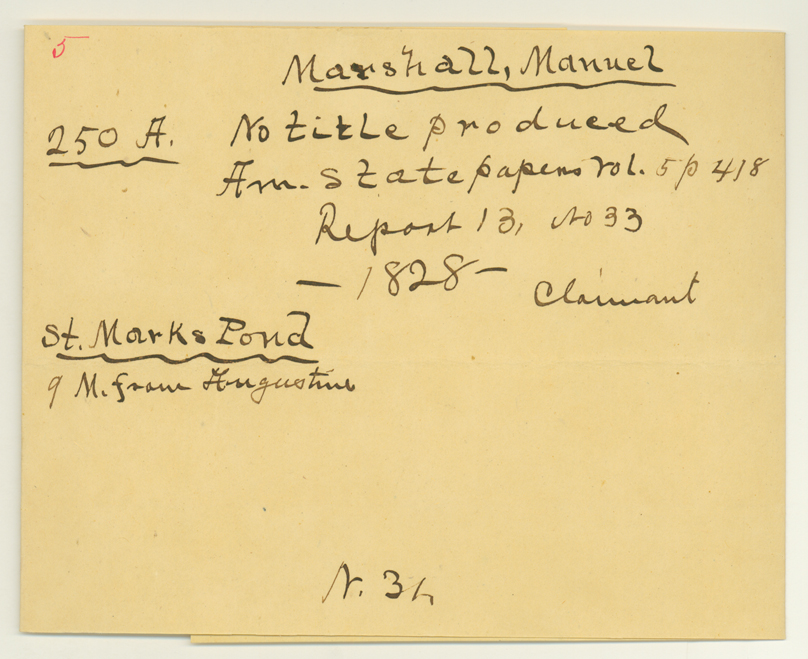 5
Marshall, Manuel
250 A. No title produced
Am. State papers Vol. 5 p 418
Report 13, No 33
— 1828 —
Claimant
St. Marks Pond
9 M. from Augustine
N. 3